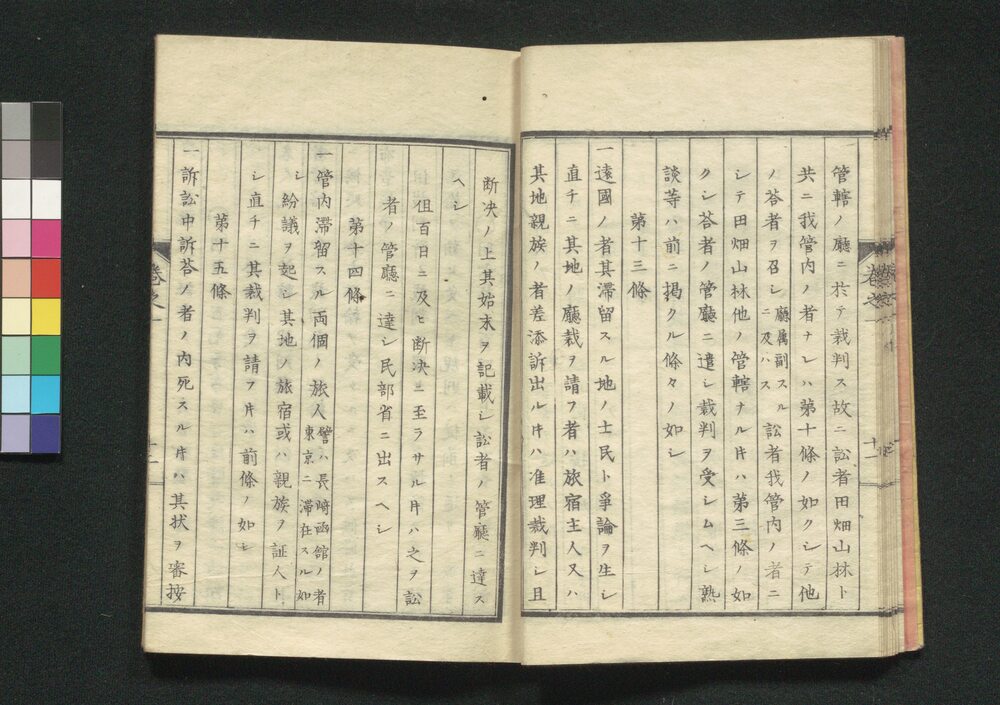 管轄ノ廳ニ於テ裁判ス故ニ訟者田畑山林ト
共ニ我管内ノ者ナレハ第十條ノ如クシテ他
ノ答者ヲ召シ廳属副スルニ及ハス訟者我管内ノ者ニ
シテ田畑山林他ノ管轄ナル片ハ第三條ノ如
クシ答者ノ管廳ニ遣シ裁判ヲ受シムヘシ熟
談等ハ前ニ掲クル條々ノ如シ
第十三條
一遠國ノ者其滞留スル地ノ士民ト爭論ヲ生シ
直チニ其地ノ廳裁ヲ請フ者ハ旅宿主人又ハ
其地親族ノ者差添訴出ル片ハ准理裁判シ且
断决ノ上其始末ヲ記載シ訟者ノ管廳ニ達ス
ヘシ
但百日ニ及ヒ断决ニ至ラサル片ハ之ヲ訟
者ノ管廳ニ達シ民部省ニ出スヘシ
第十四條
一管内滞留スル両個ノ旅人譬ハ長崎函館ノ者東京ニ滞在スル如
シ紛議ヲ起シ其地ノ旅宿或ハ親族ヲ証人ト
シ直チニ其裁判ヲ請フ片ハ前條ノ如シ
第十五條
一訴訟中訴答ノ者ノ内死スル片ハ其状ヲ審按
巻之一
十一
巻之一